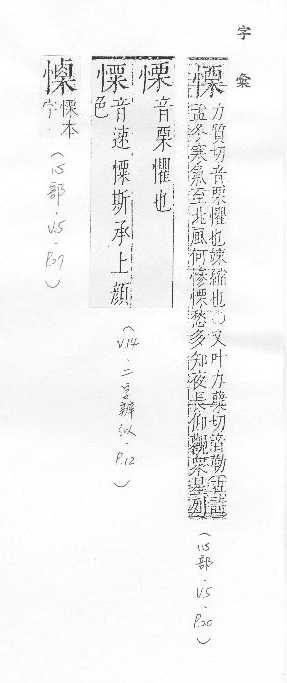 字彙
慄
力質切音栗懼也竦縮也○又叶力蘗切音勒古詩
孟冬寒氣至北風何慘慄愁多知夜長仰觀衆星列
(心部．V5．P.20)
慄
音栗懼也
憟
音速憟斯承上顔
色
(V.14．二字辨似．P.12)
慄本
字
(心部．V5．P.37)